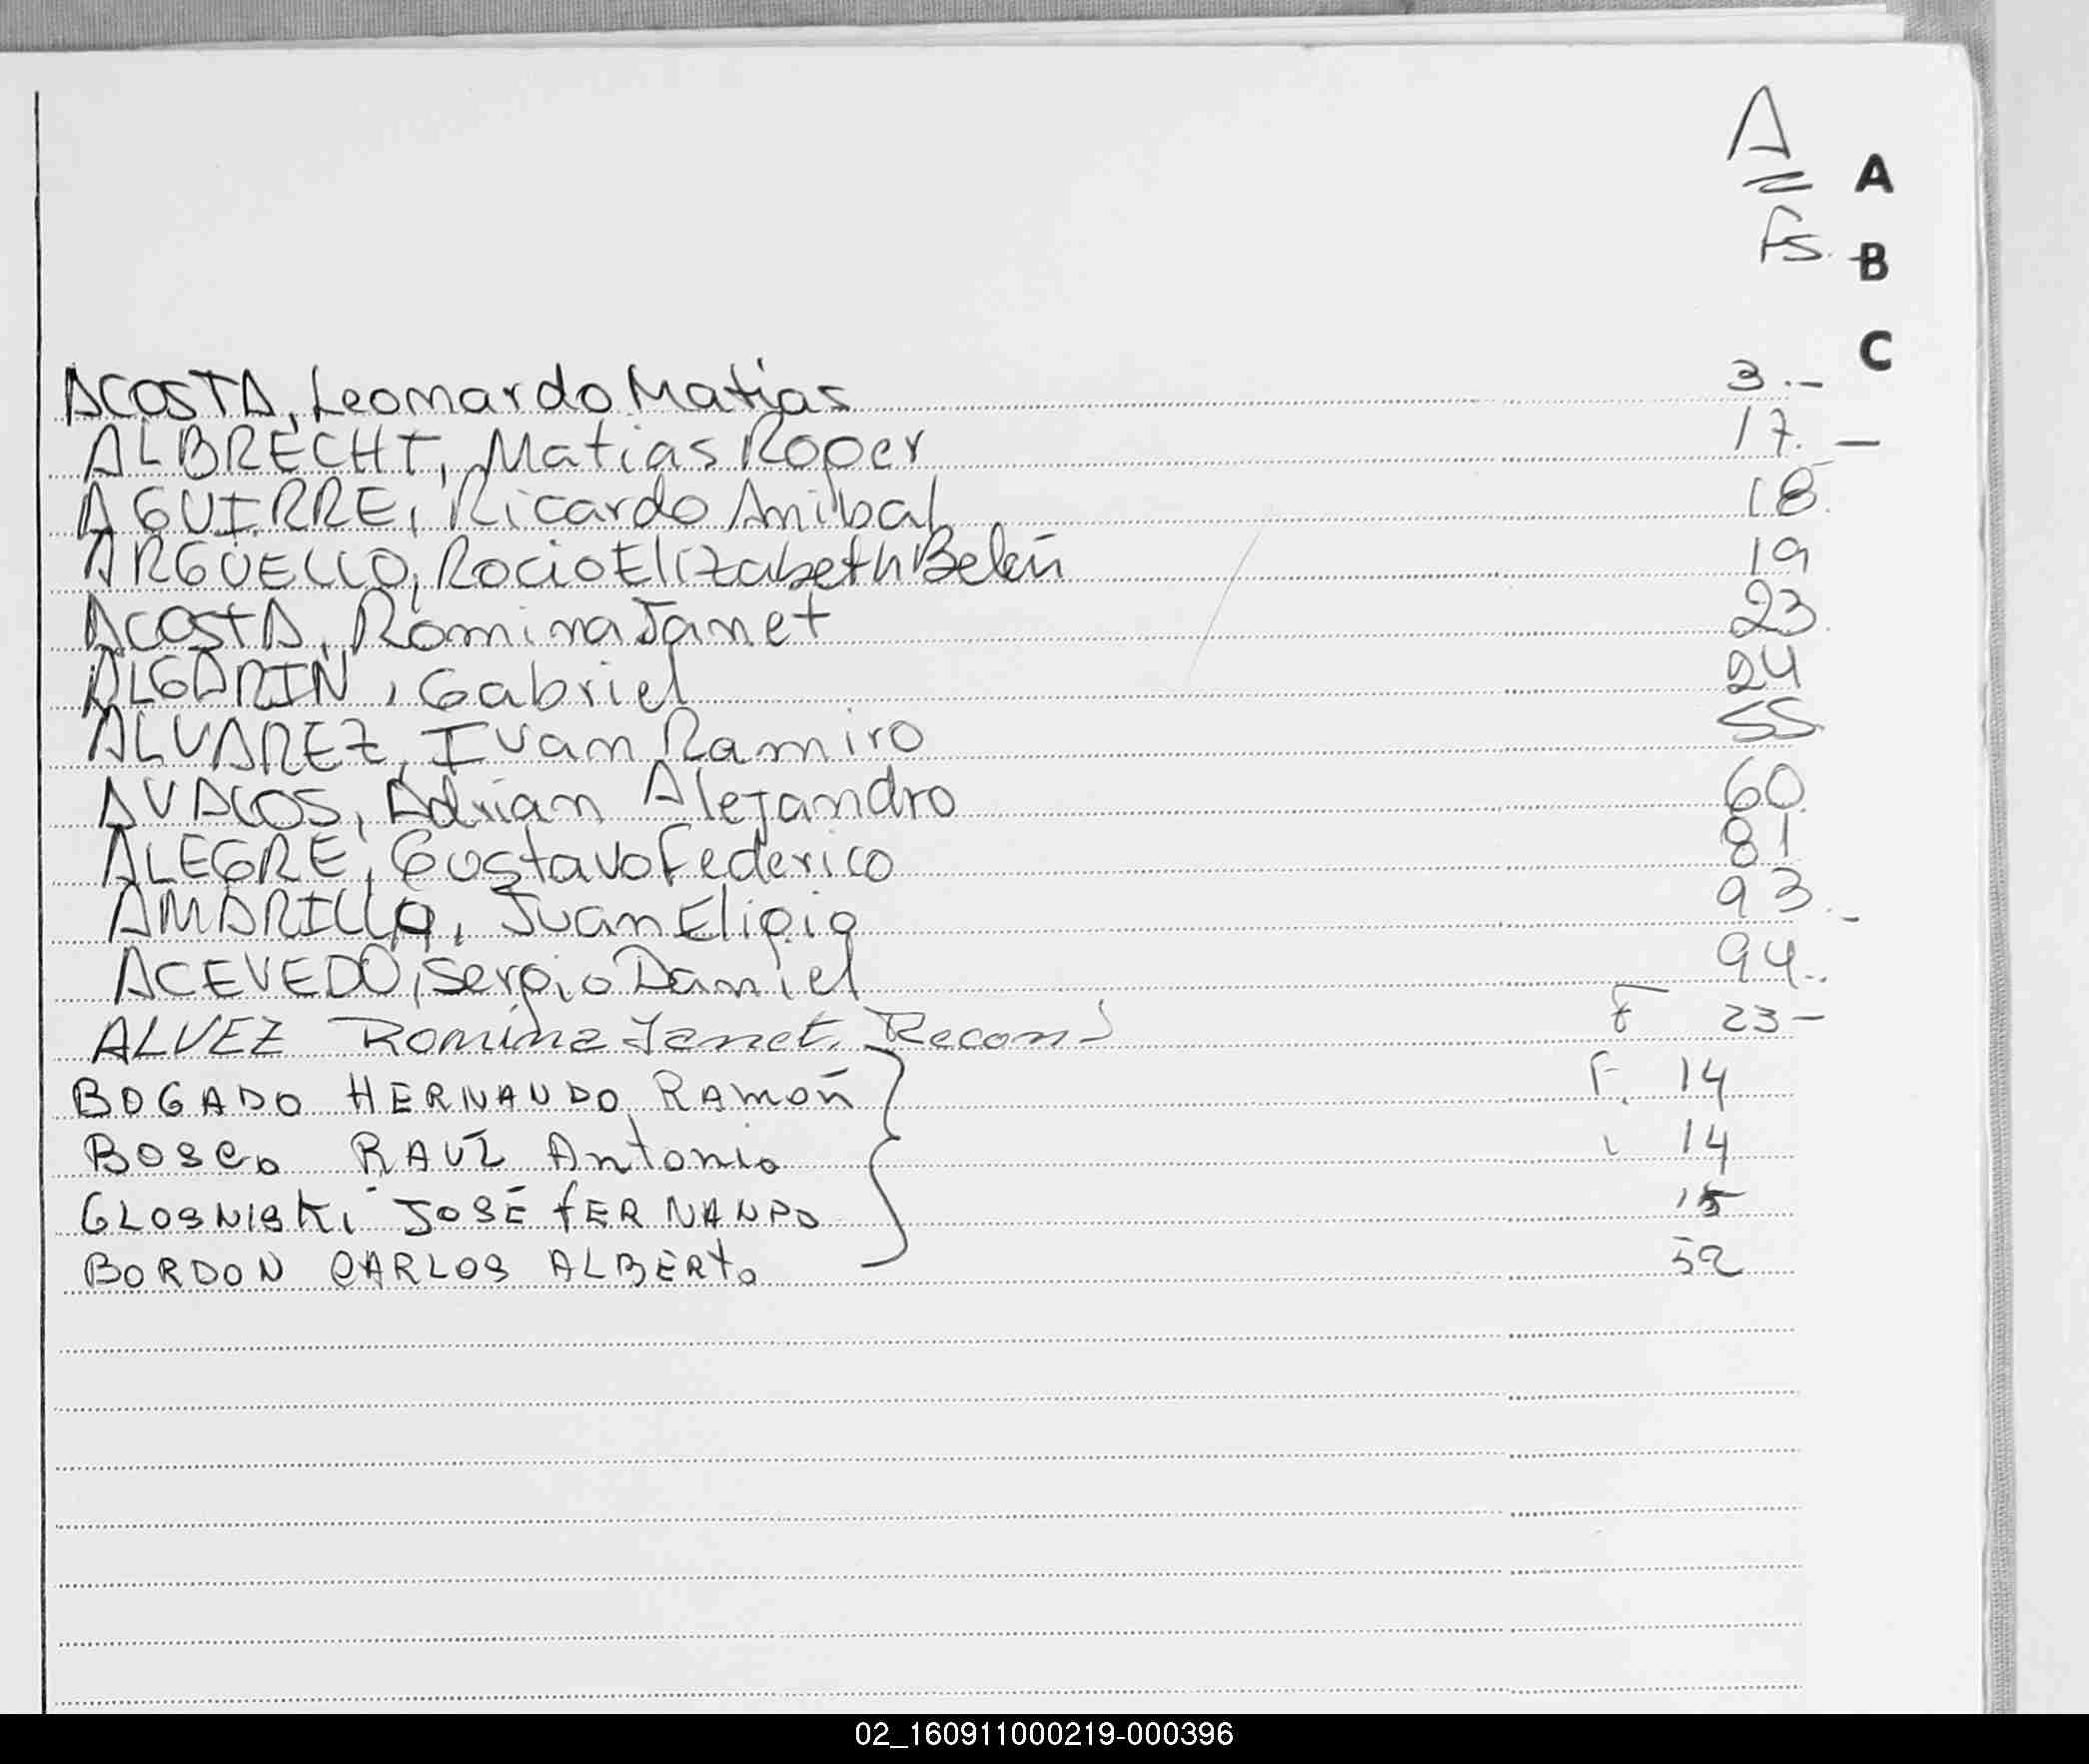 A
A
Fs. B
C
ACOSTA, Leonardo Matias 3.-
ALBRECHT, Matias Roger 17. -
AGUIRRE, Ricardo Anibal 18.
ARGÜELLO, Rocio Elizabeth Belén 19
ACOSTA, Romina Janet 23.
ALGARIN, Gabriel 24
ALVAREZ, Ivan Ramiro 55.
AVALOS, Adrian Alejandro 60.
ALEGRE, Gustavo Federico 81
AMARILLA, Juan Eligio 93.-
ACEVEDO, Sergio Daniel 94..
ALVEZ Romina Janet. Recon F 23-
BOGADO HERNANDO RAMÓN F. 14
BOSCO RAÚL Antonio 14
GLOSNISKI JOSÉ FERNANDO 15
BORDON CARLOS ALBERTO 52
02_160911000219-000396